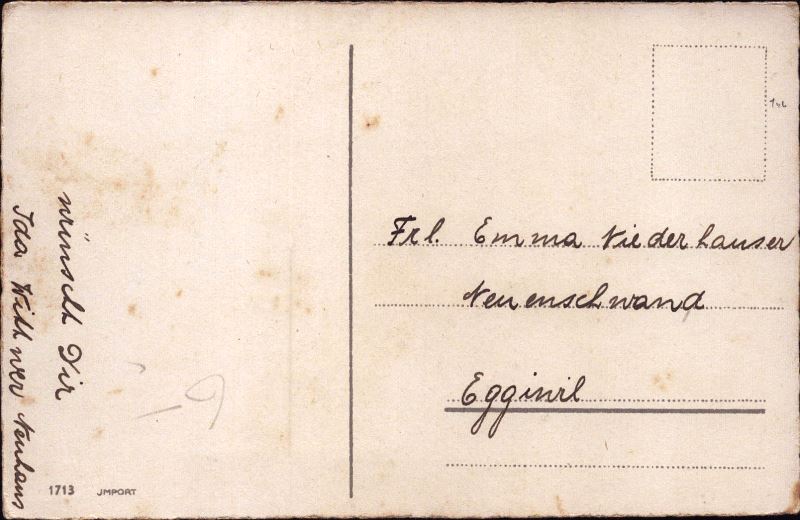 wünscht Dir
Ida Withwer Neuhaus
1713 JMPORT
Frl. Emma Niederhauser
Neuenschwand
Eggiwil